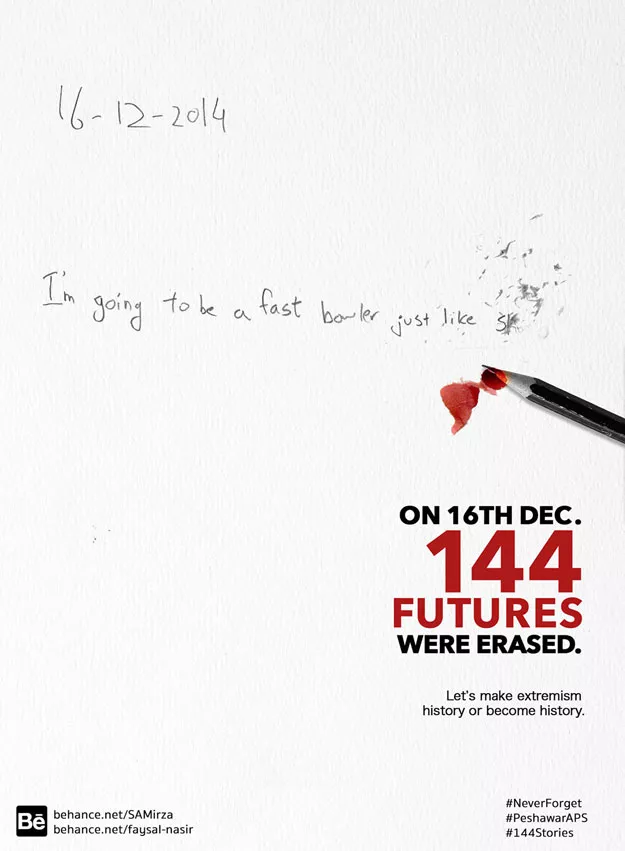 16-12-2014
I'm going to be a fast bowler just like
ON 16TH DEC.
144
FUTURES
WERE ERASED.
Let's make extremism
history or become history.
Bē
behance.net/SAMirza
behance.net/faysal-nasir
#NeverForget
#PeshawarAPS
#144Stories